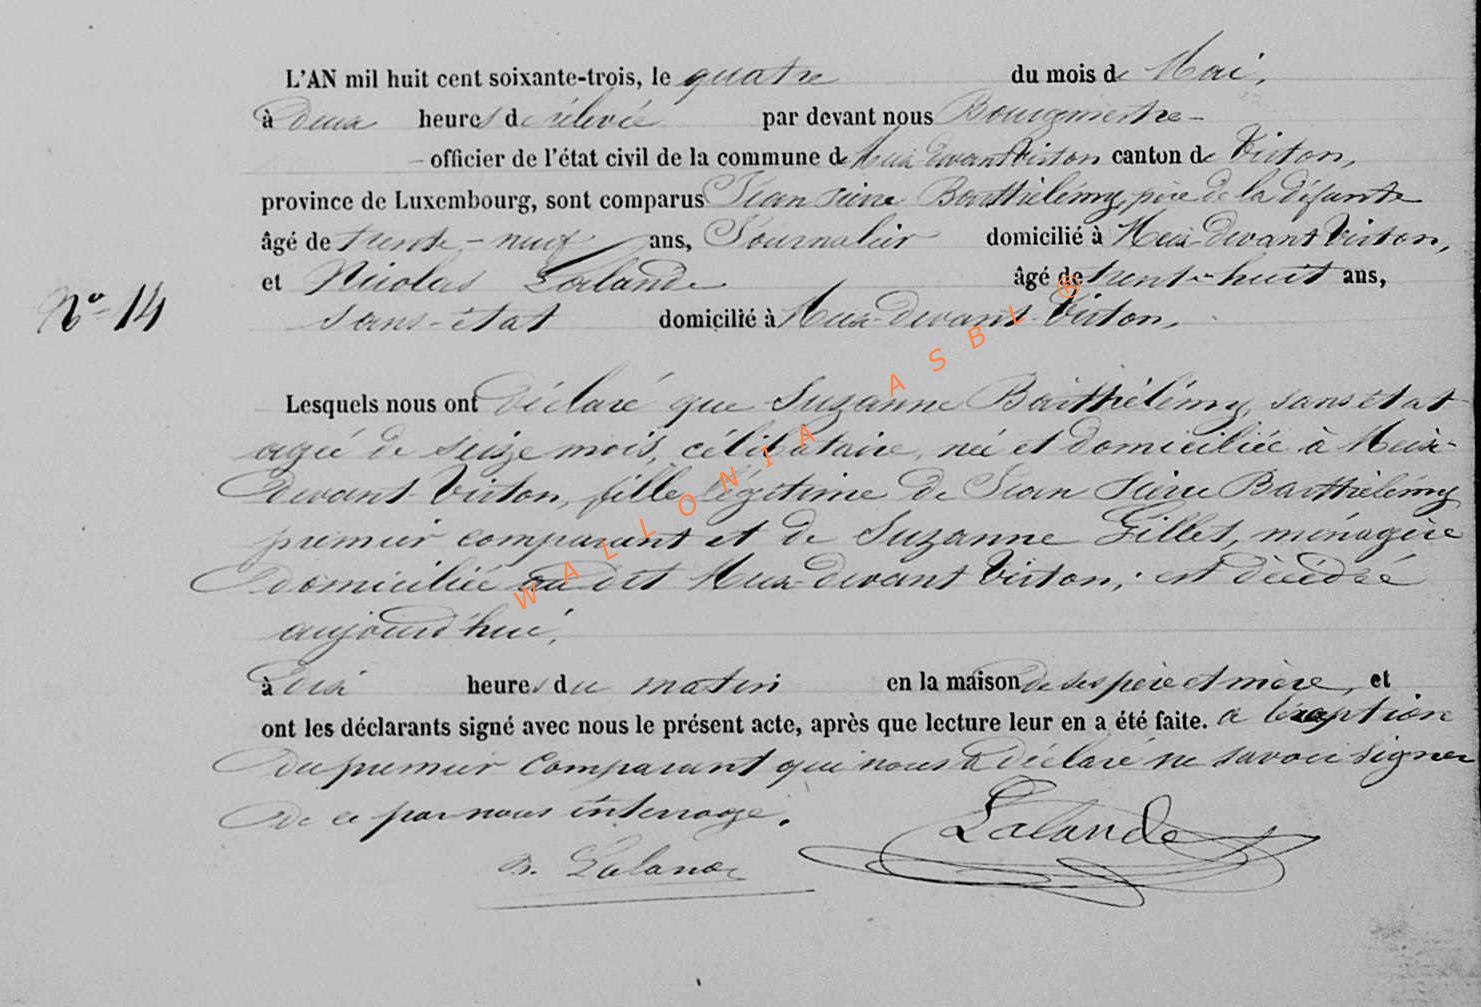 L'AN mil huit cent soixante-trois, le quatre du mois de Mai,
à deux heures de rélevée par devant nous Bourgmestre -
- officier de l'état civil de la commune de Meix devant Virton canton de Virton,
province de Luxembourg, sont comparus Jean Pierre Barthélémy, père de la défunte
âgé de trente-neuf ans, Journalier domicilié à Meix-devant Virton,
et Nicolas Lalande âgé de trente-huit ans,
N° 14
sans-état domicilié à Meix-devant Virton,
Lesquels nous ont déclaré que Suzanne Barthélémy, sans état
agée de seize mois, célibataire, née et domiciliée à Meix-
devant-Virton, fille légitime de Jean Pierre Barthélémy
premier comparant et de Suzanne Gillet, ménagère
domiciliée au dit Meix-devant Virton, est décédée
aujourd'hui,
à dix heures du matin en la maison de ses père et mère, et
ont les déclarants signé avec nous le présent acte, après que lecture leur en a été faite. a l'exception
du premier comparant qui nous a déclaré ne savoir signer
de ce par nous interrogé.
Lalande
N. Lalande
WALLONIA ASBL ®